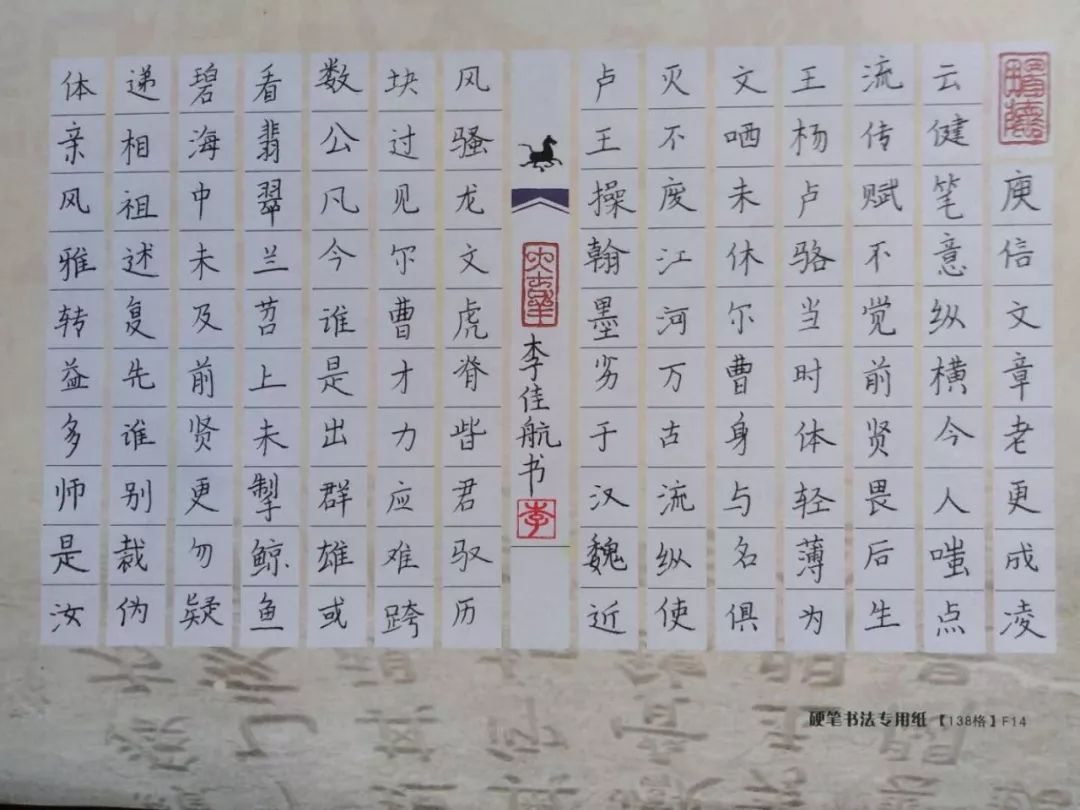 庾信文章老更成凌
云健笔意纵横今人嗤点
流传赋不觉前贤畏后生
王杨卢骆当时体轻薄为
文哂未休尔曹身与名俱
灭不废江河万古流纵使
卢王操翰墨劣于汉魏近
李佳航书
李
风骚龙文虎脊皆君驭历
块过见尔曹才力应难跨
数公凡今谁是出群雄或
看翡翠兰苕上未掣鲸鱼
碧海中未及前贤更勿疑
递相祖述复先谁别裁伪
体亲风雅转益多师是汝
硬笔书法专用纸【138格】F14